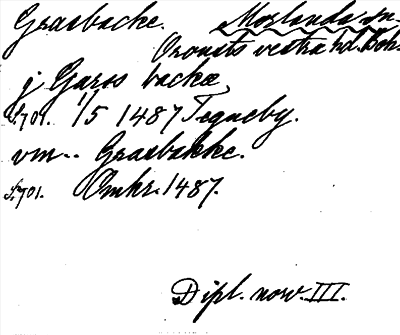 Grasbacke. Morlanda sn.
Orousts vestra hd. Boh.
j Garos backæ
S. 701. 1/5 1487 Tegneby.
vm.. Grasbakke.
S. 701. Omkr. 1487.
Dipl. norv. III.